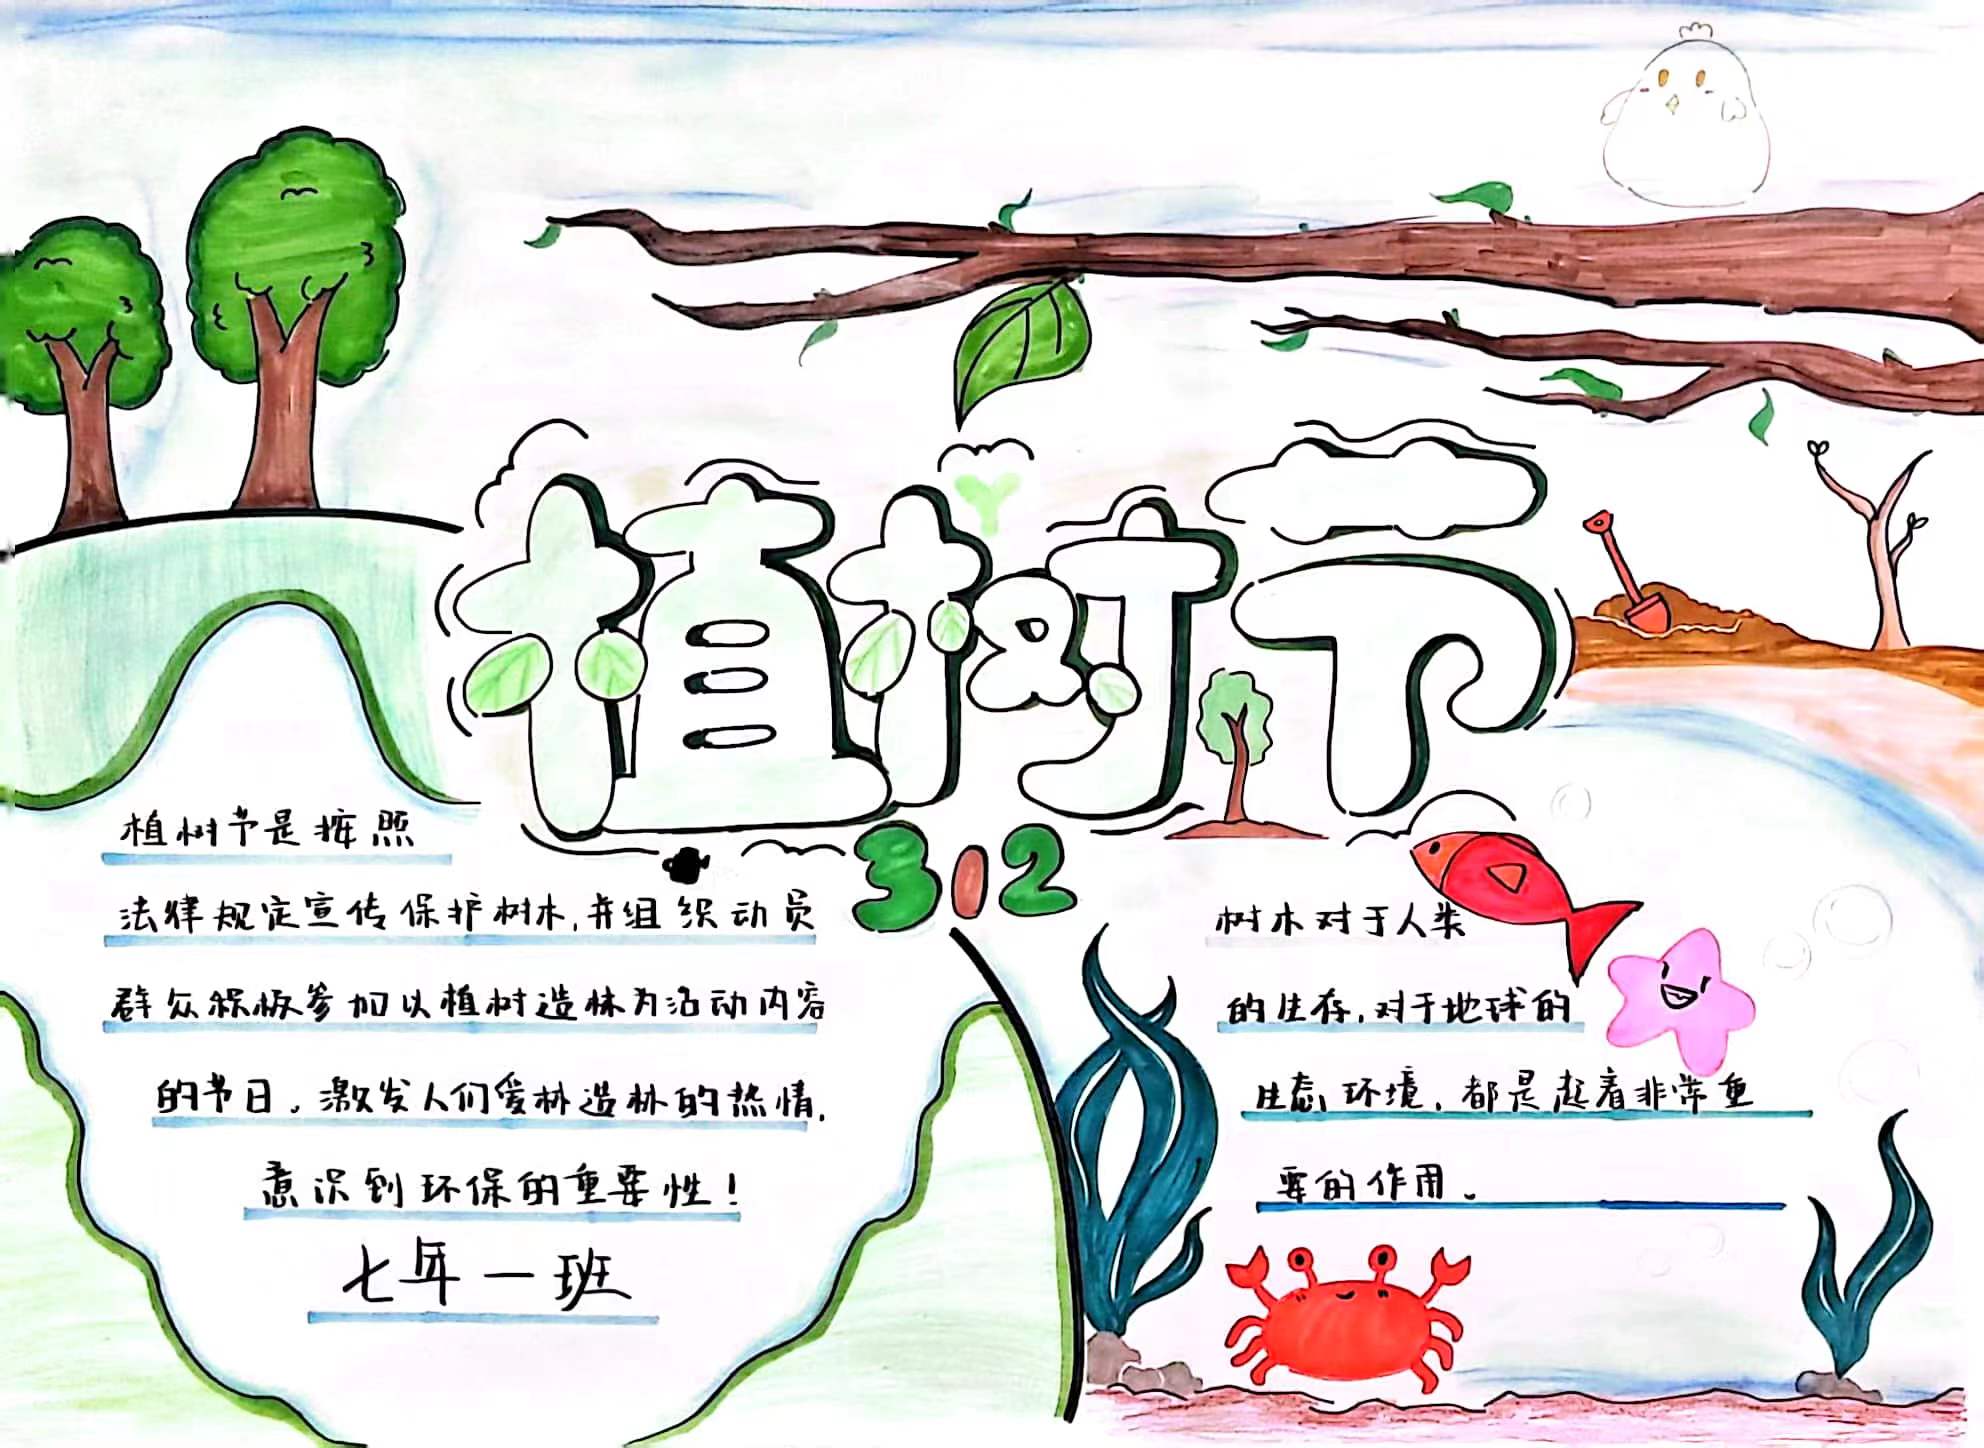 植树节
312
植树节是按照
法律规定宣传保护树木,并组织动员
群众积极参加以植树造林为活动内容
的节日。激发人们爱林造林的热情,
意识到环保的重要性!
七年一班
树木对于人类
的生存,对于地球的
生态环境,都是起着非常重
要的作用。